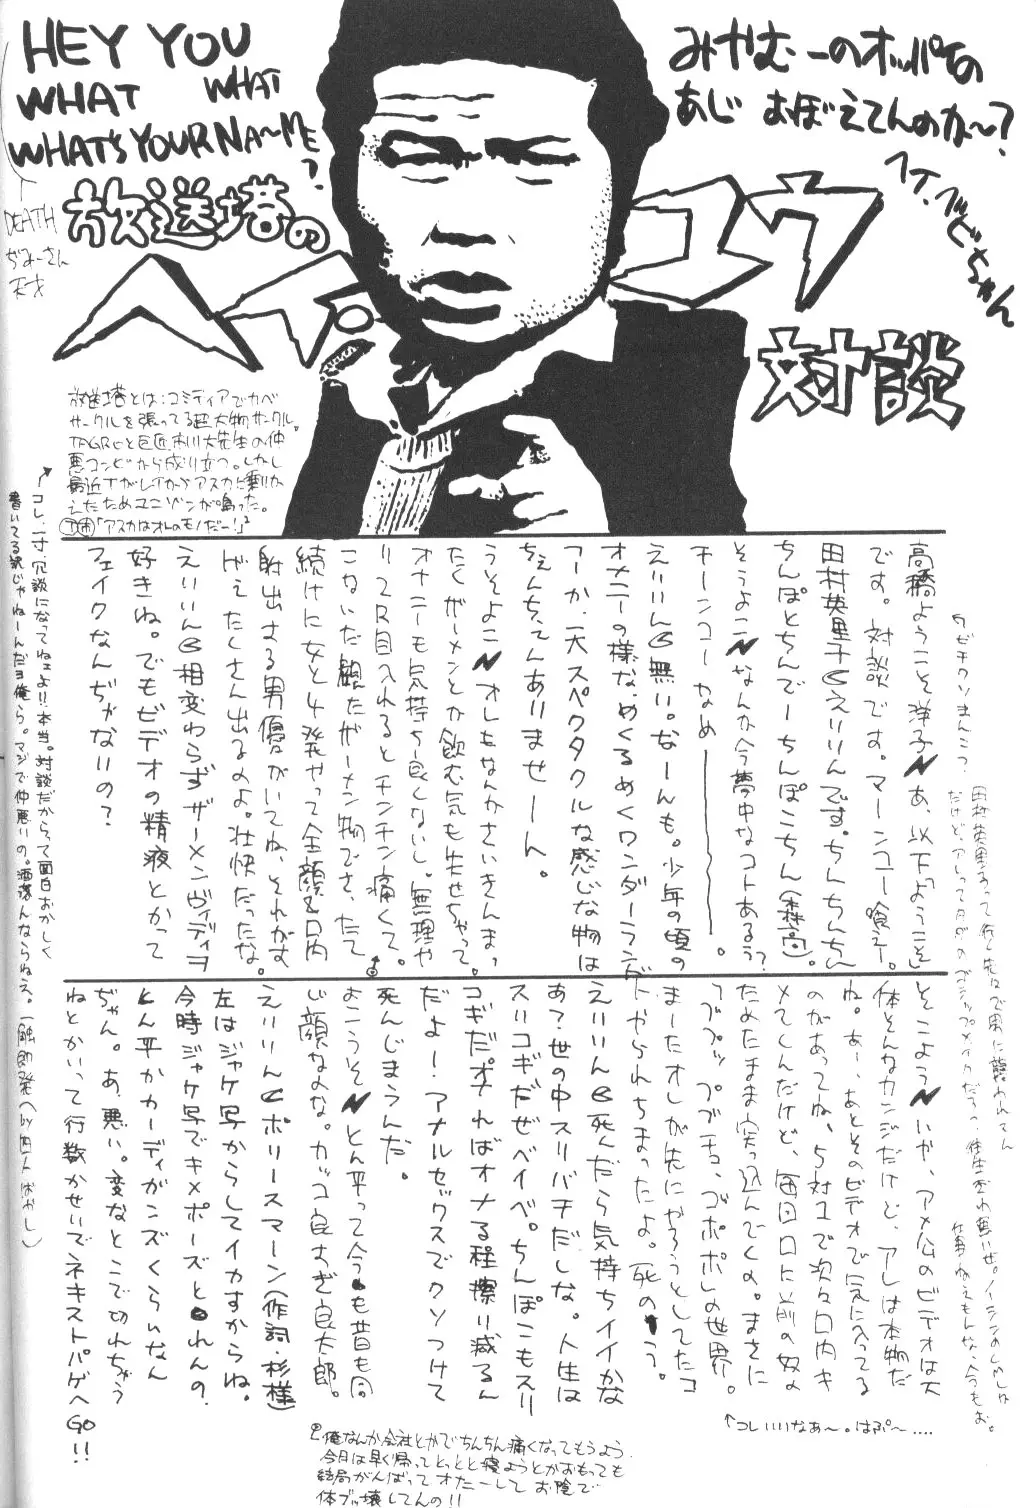 HEY YOU
WHAT WHAT
WHAT'S YOUR NA〜ME?
DEATH
ぢゅーさん
天才
みやむーのオッパイの
あじ おぼえてんのか〜?
放送塔の
ヘイ ユウ
対談
放送塔とは:コミティアでカベ
サークルを張ってる超大物サークル。
TAGROと巨匠市川大先生の仲
悪コンビから成り立つ。しかし
最近
えたためユニゾンが鳴った。
「アスカはオレのモノだー!」
コレ、一寸冗談になってねェよ!!本当。対談だからって面白おかしく
書いてる訳じゃねーんだョ俺ら。マジで仲悪いの。洒落んならねえ。
高橋ようこそ洋子 あ、以下「ようこそ」
です。対談です。マーンコー喰えー。
田村英里子 えりりんです。ちんちんちん
ちんぽとちんでーちんぽこちん(森高)
そうよこ なんか今夢中なコトあるぅ?
チーンコーなめ――――。
えりりん 無い。なーんも。少年の頃の
オメニーの様な、めくるめくワンダーランド
アーか、一大スペクタクルな感じな物は
ちぇんちぇんありませーん。
うそよこ オレもなんかさいきんまっ
たくザーメンとか飲む気も失せちゃって。
オナニーも気持ち良くないし。無理や
り2R目入れるとチンチン痛くて。
こないだ観たザーメン物でさ、たて
続けに女と4発やって全顔&口内
射出する男優がいてね、それがす
げえたくさん出るのよ。壮快だったな。
えりりん 相変わらずザーメンヴィディヲ
好きね。でもビデオの精液とかって
フェイクなんぢゃないの?
そこよう いや、アメ公のビデオは大
体そんなカンジだけど、アレは本物だ
ね。あー、あとそのビデオで気に入ってる
のがあってね、5対1で次々口内キ
メてくんだけど、毎回口に前の奴の
ためたまま突っ込んでくの。まさに
ブブッップブチョ、ゴポポしの世界。
まーたオレが先にやろうとしてたコ
トやられちまったよ。死のう。
えりりん 死んだら気持ちイイかな
あ?世の中スリバチだしな。人生は
スリコギだぜベイベ。ちんぽこもスリ
コギだ。オナればオナる程擦り減るん
だよー!アナルセックスでクソつけて
死んじまうんだ。
よこうそ とん平って今も昔も同
じ顔なのな。カッコ良すぎ良太郎。
えりりーん ポリースマーン(作詞・杉様)
左はジャケ写からしてイカすからね。
今時ジャケ写でキメポーズとれんの、
とん平かカーディガンズくらいなん
ぢゃん。あ、悪い。変なとこで切れちゃう
ねとかいって行数かせいでネキストパゲへGO!!
↑コレいいなあ〜。はぷ〜....
俺なんか会社とかでちんちん痛くなってもうよう
今日は早く帰ってとっとと寝ようとかおもっても
結局がんばってオナニーして お陰で
体ブッ壊してんの!!